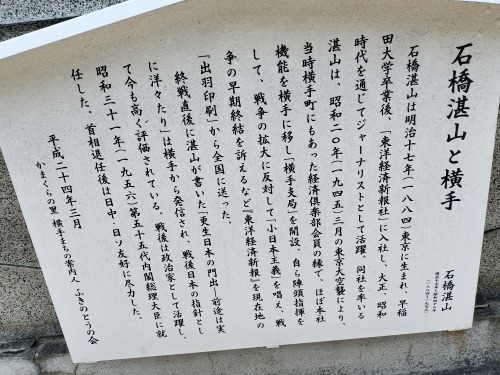 石橋湛山と横手
石橋湛山
石橋湛山は明治十七年(一八八四)東京に生まれ、早稲
田大学卒業後、「東洋経済新報社」に入社し、大正、昭和
時代を通じてジャーナリストとして活躍。同社を率いる
湛山は、昭和二〇年(一九四五)三月の東京大空襲により、
当時横手町にもあった経済倶楽部会員の縁で、ほぼ本社
機能を横手に移し「横手支局」を開設。自ら陣頭指揮を
して、戦争の拡大に反対して「小日本主義」を唱え、戦
争の早期終結を訴えるなど『東洋経済新報』を現在地の
「出羽印刷」から全国に送った。
終戦直後に湛山が書いた「更生日本の門出―前途は実
に洋々たり」は横手から発信され、戦後日本の指針とし
て今も高く評価されている。戦後は政治家として活躍し、
昭和三十一年(一九五六)第五十五代内閣総理大臣に就
任した。首相退任後は日中・日ソ友好に尽力した。
平成二十四年三月
かまくらの里 横手まちの案内人 ふきのとうの会